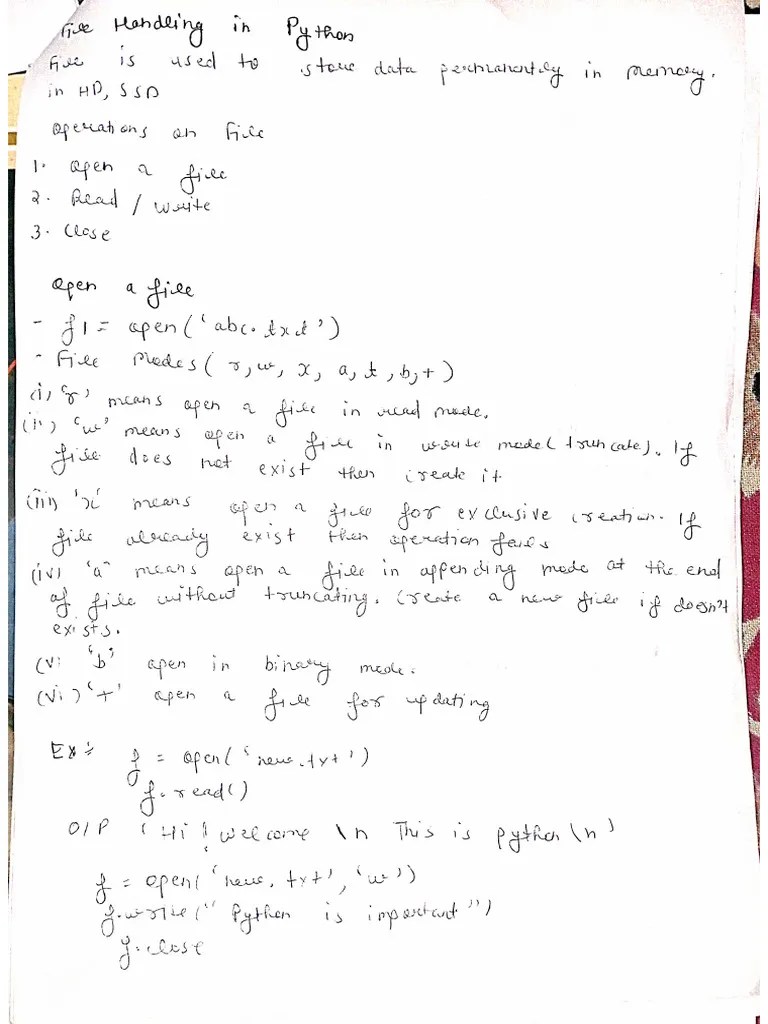 File Handling in Python
File is used to store data permanently in memory.
in HD, SSD
Operations on File
1. open a file
2. Read / write
3. Close
open a file
- f1 = open('abc.txt')
- File Modes( r, w, x, a, t, b, +)
(i) 'r' means open a file in read mode.
(ii) 'w' means open a file in write mode( truncate). If
file does not exist then create it
(iii) 'x' means open a file for exclusive creation. If
file already exist then operation fails
(iv) 'a' means open a file in appending mode at the end
of file without truncating. Create a new file if doesn't
exists.
(v) 'b' open in binary mode.
(vi) '+' open a file for updating
Ex:- f = open('new.txt')
f.read()
O/P 'Hi! welcome \n This is python \n'
f = open('new.txt', 'w')
f.write(" Python is important")
f.close